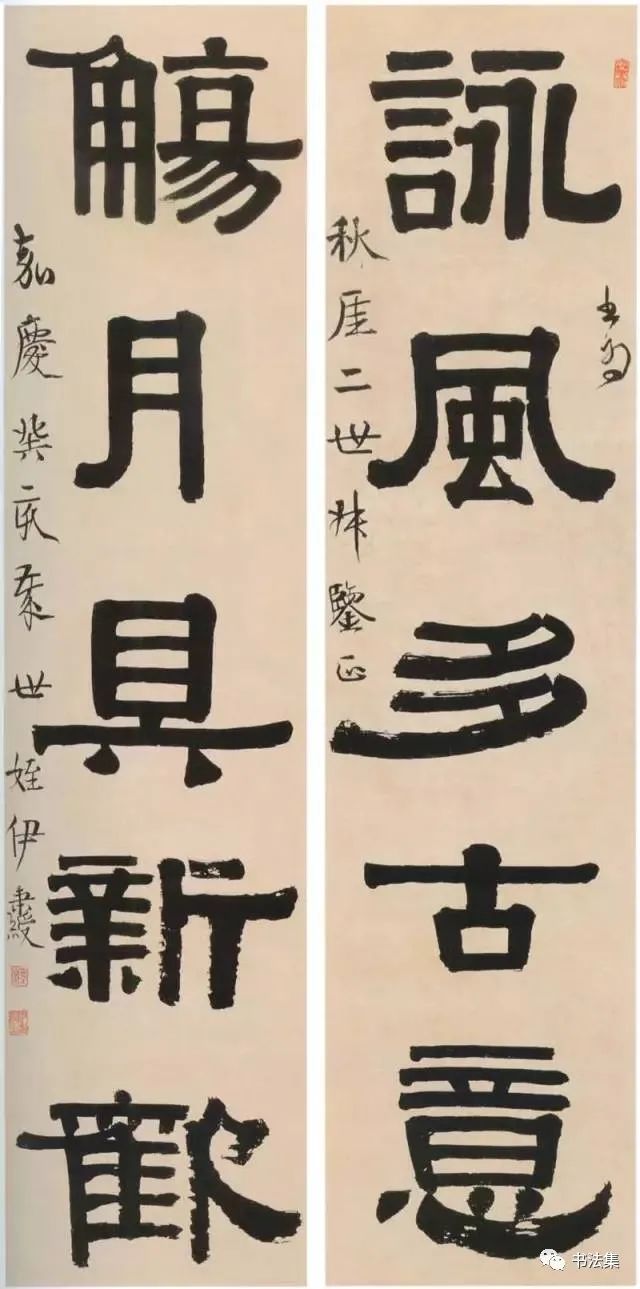 詠風多古意
書為
秋厓二世叔鑒正
觴月具新歡
嘉慶癸亥世姪伊秉綬
书法集